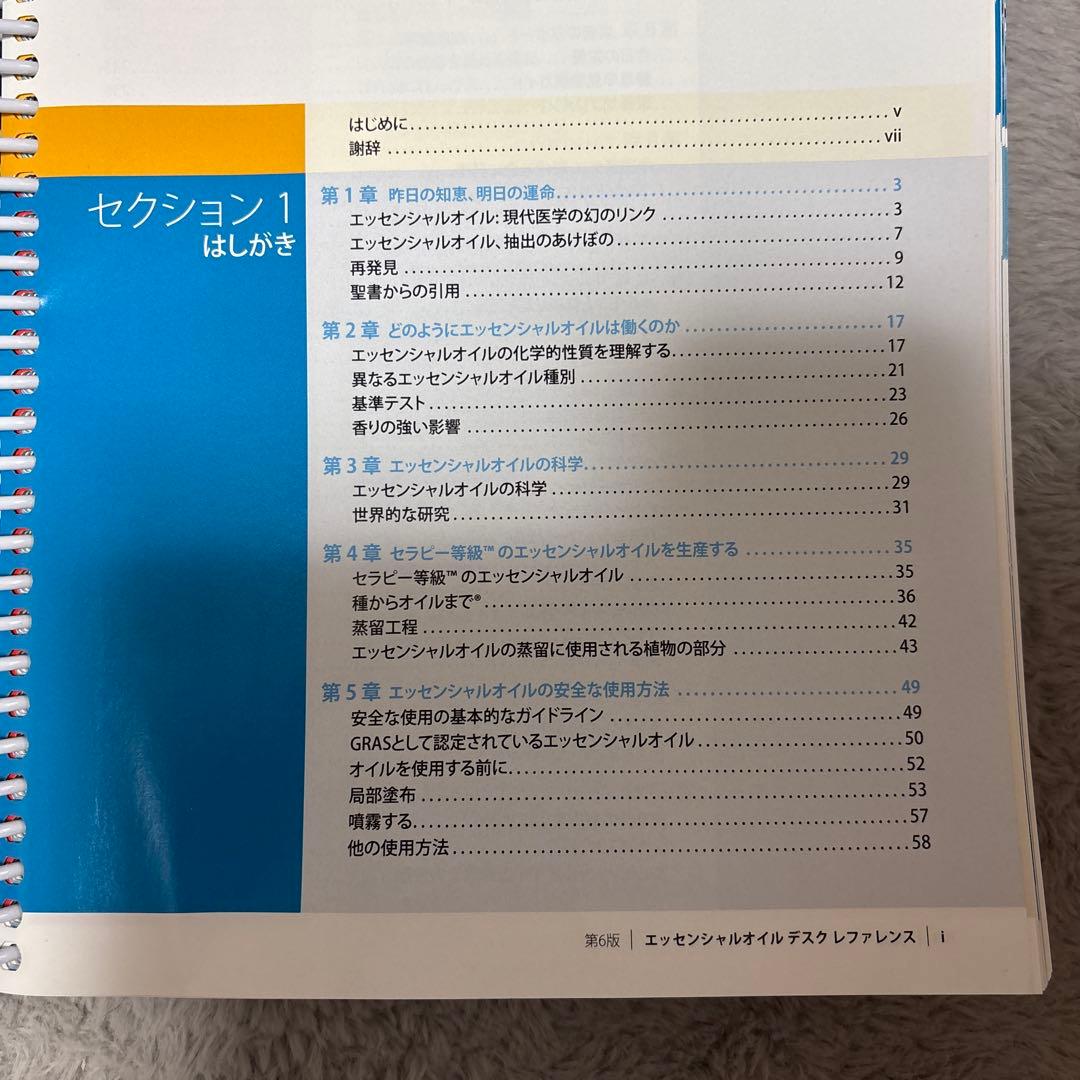 はじめに........ v
謝辞 ........ vii
セクション 1
はしがき
第 1 章 昨日の知恵、明日の運命........ 3
エッセンシャルオイル: 現代医学の幻のリンク ........ 3
エッセンシャルオイル、抽出のあけぼの ........ 7
再発見 ........ 9
聖書からの引用 ........ 12
第 2 章 どのようにエッセンシャルオイルは働くのか ........ 17
エッセンシャルオイルの化学的性質を理解する........ 17
異なるエッセンシャルオイル種別 ........ 21
基準テスト ........ 23
香りの強い影響 ........ 26
第 3 章 エッセンシャルオイルの科学........ 29
エッセンシャルオイルの科学 ........ 29
世界的な研究........ 31
第 4 章 セラピー等級™ のエッセンシャルオイルを生産する ........ 35
セラピー等級™ のエッセンシャルオイル ........ 35
種からオイルまで®........ 36
蒸留工程 ........ 42
エッセンシャルオイルの蒸留に使用される植物の部分 ........ 43
第 5 章 エッセンシャルオイルの安全な使用方法 ........ 49
安全な使用の基本的なガイドライン ........ 49
GRASとして認定されているエッセンシャルオイル ........ 50
オイルを使用する前に........ 52
局部塗布 ........ 53
噴霧する........ 57
他の使用方法 ........ 58
第6版 | エッセンシャルオイル デスク レファレンス | i